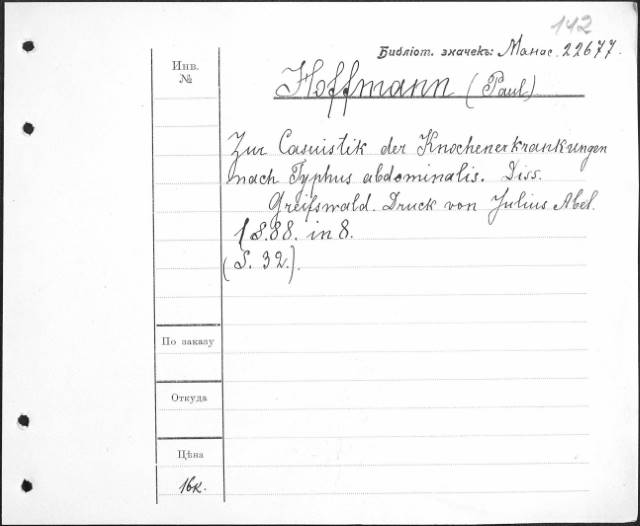 142
Библіот. значекъ: Манас. 22677.
Инв.
№
Hoffmann (Paul)
Zur Casuistik der Knochenerkrankungen
nach Typhus abdominalis. Diss.
Greifswald. Druck von Julius Abel.
18.88. in 8.
(S. 32.).
По заказу
Откуда
Цѣна
16к.